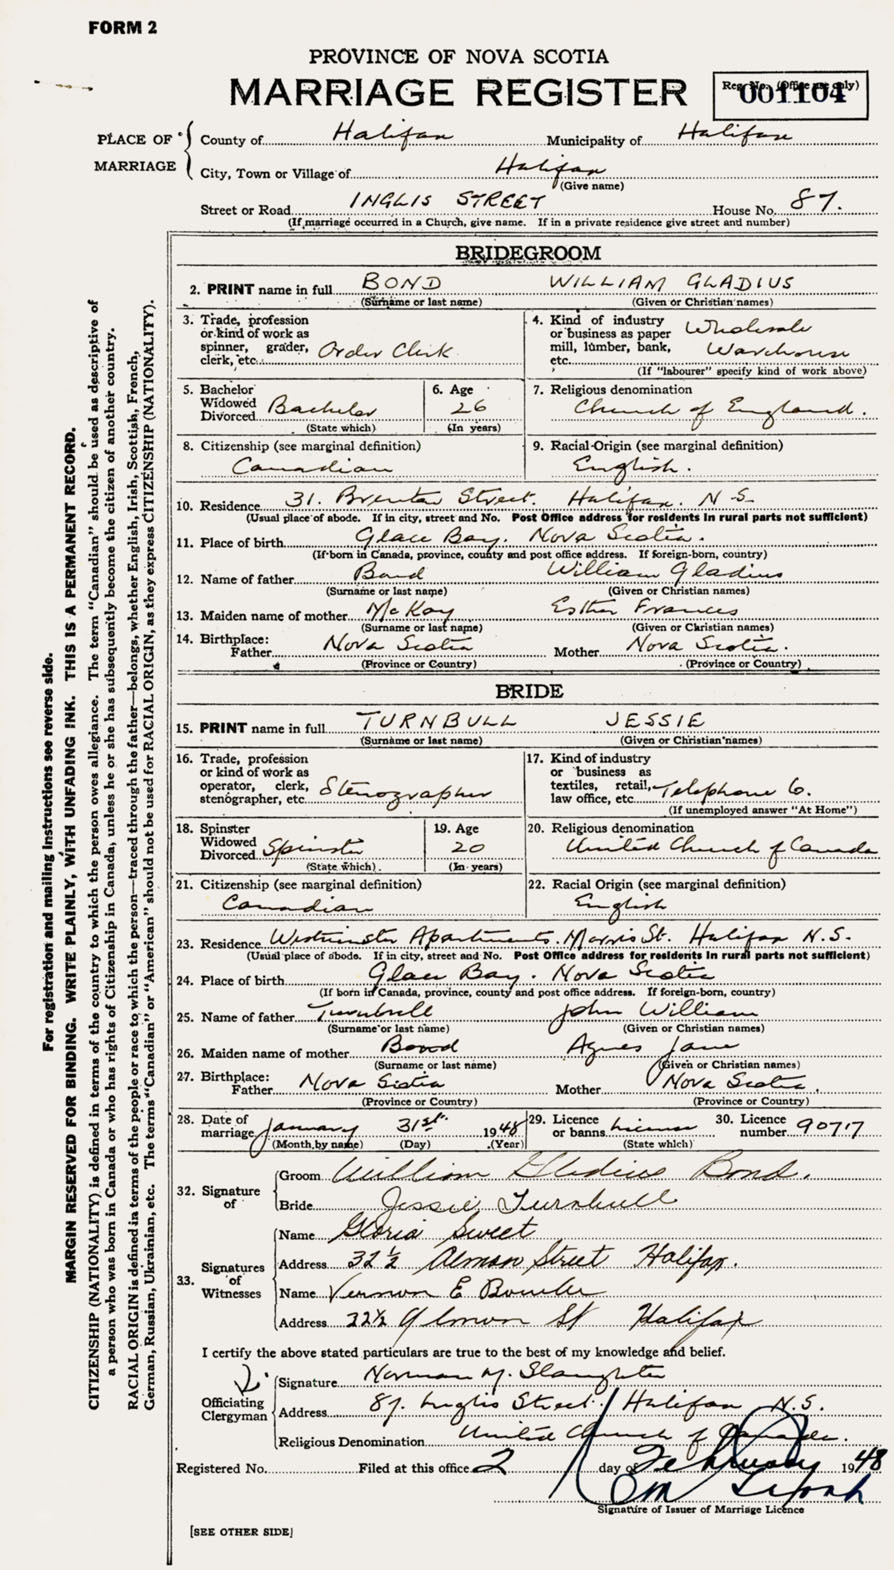 FORM 2
PROVINCE OF NOVA SCOTIA
MARRIAGE REGISTER
Reg. No. (Office use only)
001104
PLACE OF MARRIAGE
County of Halifax Municipality of Halifax
City, Town or Village of Halifax
(Give name)
Street or Road INGLIS STREET House No. 87.
(If marriage occurred in a Church, give name. If in a private residence give street and number)
BRIDEGROOM
2. PRINT name in full BOND WILLIAM GLADIUS
(Surname or last name) (Given or Christian names)
3. Trade, profession or kind of work as spinner, grader, clerk, etc. Order Clerk
4. Kind of industry or business as paper mill, lumber, bank, etc. Wholesale Warehouse
(If "labourer" specify kind of work above)
5. Bachelor Widowed Divorced Bachelor
(State which)
6. Age 26
(In years)
7. Religious denomination
Church of England.
8. Citizenship (see marginal definition)
Canadian
9. Racial Origin (see marginal definition)
English.
10. Residence 31. Brenton Street. Halifax. N.S.
(Usual place of abode. If in city, street and No. Post Office address for residents in rural parts not sufficient)
11. Place of birth Glace Bay. Nova Scotia.
(If born in Canada, province, county and post office address. If foreign-born, country)
12. Name of father Bond William Gladius
(Surname or last name) (Given or Christian names)
13. Maiden name of mother McKay Esther Frances
(Surname or last name) (Given or Christian names)
14. Birthplace: Father Nova Scotia Mother Nova Scotia.
(Province or Country) (Province or Country)
BRIDE
15. PRINT name in full TURNBULL JESSIE
(Surname or last name) (Given or Christian names)
16. Trade, profession or kind of work as operator, clerk, stenographer, etc. Stenographer
17. Kind of industry or business as textiles, retail, law office, etc. Telephone Co.
(If unemployed answer "At Home")
18. Spinster Widowed Divorced Spinster
(State which)
19. Age 20
(In years)
20. Religious denomination
United Church of Canada
21. Citizenship (see marginal definition)
Canadian
22. Racial Origin (see marginal definition)
English
23. Residence Westminster Apartments. Morris St. Halifax N.S.
(Usual place of abode. If in city, street and No. Post Office address for residents in rural parts not sufficient)
24. Place of birth Glace Bay. Nova Scotia
(If born in Canada, province, county and post office address. If foreign-born, country)
25. Name of father Turnbull John William
(Surname or last name) (Given or Christian names)
26. Maiden name of mother Bond Agnes Jane
(Surname or last name) (Given or Christian names)
27. Birthplace: Father Nova Scotia Mother Nova Scotia.
(Province or Country) (Province or Country)
28. Date of marriage January 31st. 1948
(Month by name) (Day) (Year)
29. Licence or banns license
(State which)
30. Licence number 90717
32. Signature of
Groom William Gladius Bond.
Bride Jessie Turnbull
33. Signatures of Witnesses
Name Gloria Sweet
Address 32½ Almon Street Halifax.
Name Vernon E
Address 32½ Almon St Halifax
I certify the above stated particulars are true to the best of my knowledge and belief.
Officiating Clergyman
Signature Norman M. Slaughter
Address 87. Inglis Street. Halifax N.S.
Religious Denomination United Church of Canada.
Registered No. Filed at this office 2 day of February 1948
Signature of Issuer of Marriage Licence
[SEE OTHER SIDE]
For registration and mailing instructions see reverse side.
MARGIN RESERVED FOR BINDING. WRITE PLAINLY, WITH UNFADING INK. THIS IS A PERMANENT RECORD.
CITIZENSHIP (NATIONALITY) is defined in terms of the country to which the person owes allegiance. The term "Canadian" should be used as descriptive of
a person who was born in Canada or who has rights of Citizenship in Canada, unless he or she has subsequently become the citizen of another country.
RACIAL ORIGIN is defined in terms of the people or race to which the person—traced through the father—belongs, whether English, Irish, Scottish, French,
German, Russian, Ukrainian, etc. The terms "Canadian" or "American" should not be used for RACIAL ORIGIN, as they express CITIZENSHIP (NATIONALITY).